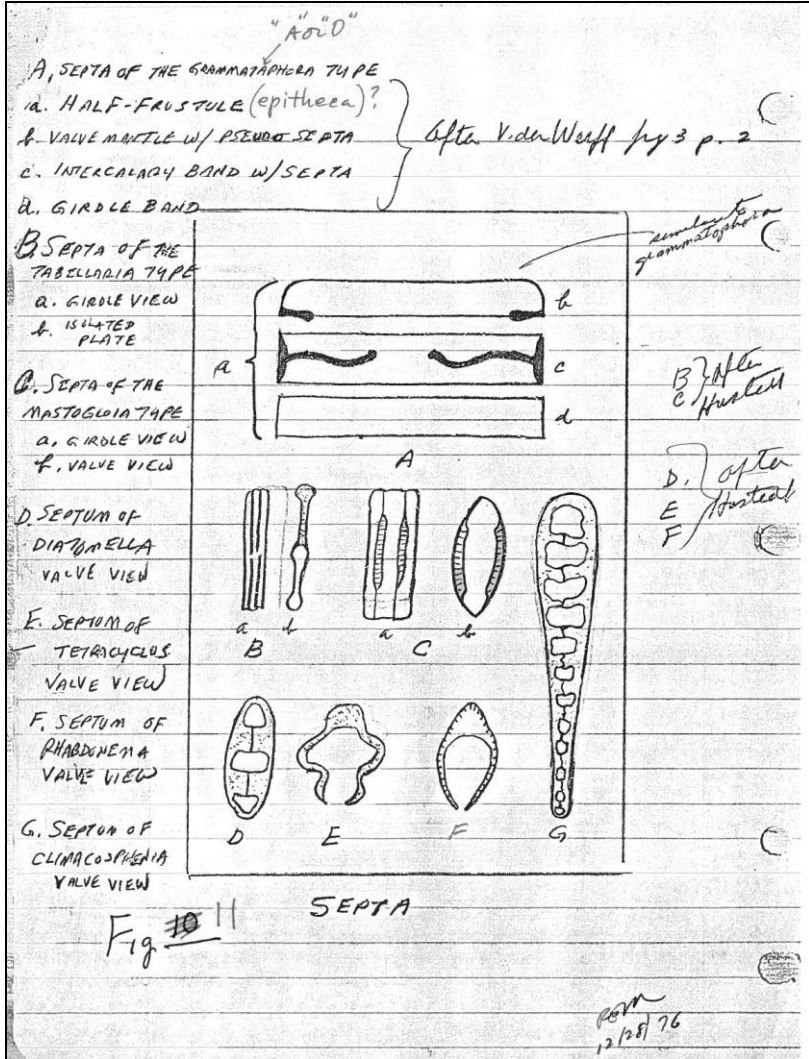 "A" or "O"
A, SEPTA OF THE GRAMMATAPHORA TYPE
a. HALF-FRUSTULE (epitheca)?
b VALVE MANTLE W/ PSEUDO SEPTA
c. INTERCALARY BAND W/ SEPTA
d. GIRDLE BAND
After V. der Werff fig 3 p. 2
similar to
grammatophora
B. SEPTA OF THE
TABELLARIA TYPE
a. GIRDLE VIEW
b. ISOLATED
PLATE
C. SEPTA OF THE
MASTOGLOIA TYPE
a. GIRDLE VIEW
b. VALVE VIEW
D. SEPTUM OF
DIATOMELLA
VALVE VIEW
E. SEPTUM OF
TETRACYCLUS
VALVE VIEW
F. SEPTUM OF
RHABDONEMA
VALVE VIEW
G. SEPTUM OF
CLIMACOSPHENIA
VALVE VIEW
a
b
c
d
A
B
C
After
Hustedt
D.
E
F
after
Hustedt
a b
B
a b
C
D E F G
SEPTA
Fig 10 11
12/28/76